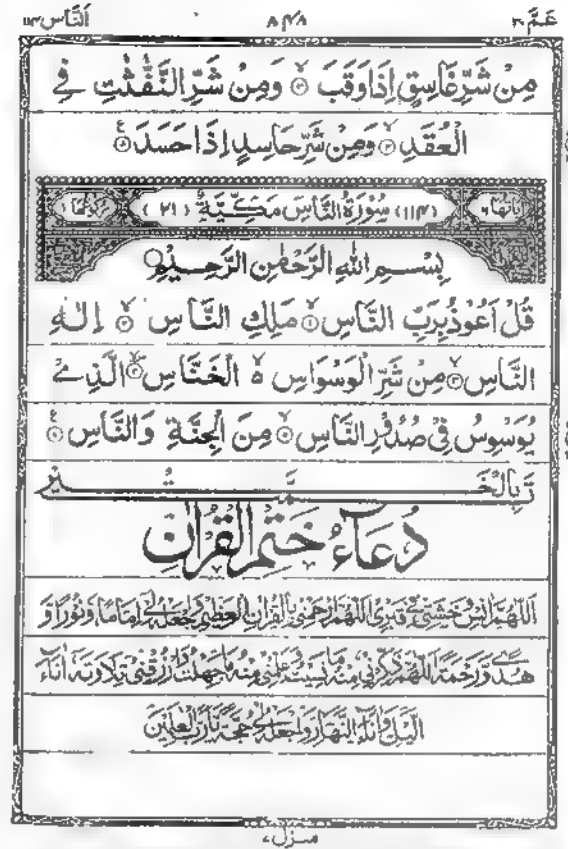 عَمَّ ٣٠ ٨٤٨ اَلنَّاس ١١٤
مِنْ شَرِّ غَاسِقٍ اِذَا وَقَبَ ۙ‏﴿۳﴾ وَمِنْ شَرِّ النَّفّٰثٰتِ فِی
الْعُقَدِ ۙ‏﴿۴﴾ وَمِنْ شَرِّ حَاسِدٍ اِذَا حَسَدَ ﴿۵﴾
اٰیَاتُهَا ٦ (١١٤) سُوْرَةُ النَّاسِ مَكِّيَّةٌ (٢١) رُكُوْعُهَا ١
بِسْمِ اللهِ الرَّحْمٰنِ الرَّحِيْمِ
قُلْ اَعُوْذُ بِرَبِّ النَّاسِ ۙ‏﴿۱﴾ مَلِكِ النَّاسِ ۙ‏﴿۲﴾ اِلٰهِ
النَّاسِ ۙ‏﴿۳﴾ مِنْ شَرِّ الْوَسْوَاسِ ۙ۬ الْخَنَّاسِ ۪ۙ‏﴿۴﴾ الَّذِیْ
یُوَسْوِسُ فِیْ صُدُوْرِ النَّاسِ ۙ‏﴿۵﴾ مِنَ الْجِنَّةِ وَالنَّاسِ ﴿۶﴾
تَمَّتْ بِالْخَيْر
دُعَآءُ خَتْمِ الْقُرْاٰنِ
اَللّٰهُمَّ اٰنِسْ وَحْشَتِیْ فِیْ قَبْرِیْ اَللّٰهُمَّ ارْحَمْنِیْ بِالْقُرْاٰنِ الْعَظِیْمِ وَاجْعَلْهُ لِیْ اِمَامًا وَّنُوْرًا وَّ
هُدًی وَّرَحْمَةً اَللّٰهُمَّ ذَكِّرْنِیْ مِنْهُ مَا نَسِیْتُ وَعَلِّمْنِیْ مِنْهُ مَا جَهِلْتُ وَارْزُقْنِیْ تِلَاوَتَهٗ اٰنَآءَ
الَّیْلِ وَاٰنَآءَ النَّهَارِ وَاجْعَلْهُ لِیْ حُجَّةً یَّا رَبَّ الْعٰلَمِیْنَ
منزل ٧